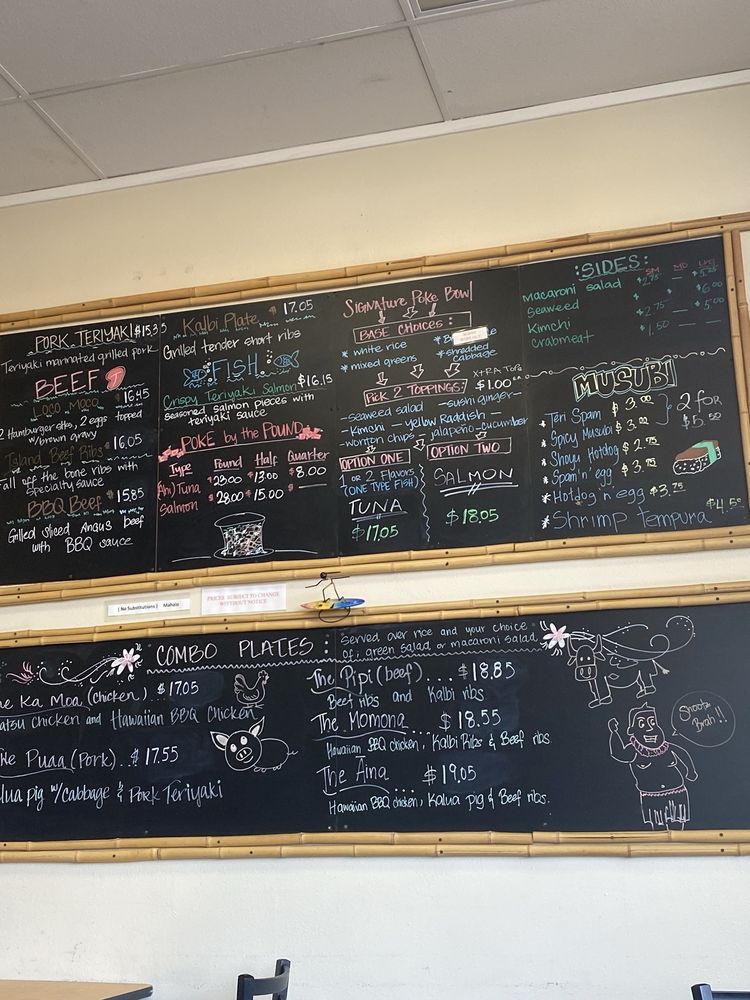 PORK TERIYAKI $15.35
Teriyaki marinated grilled pork
BEEF
LOCO MOCO $16.45
2 Hamburger ptties, 2 eggs topped
w/brown gravy
Island Beef Ribs $16.05
fall off the bone ribs with
specialty sauce
BBQ Beef $15.85
Grilled sliced Angus beef
with BBQ sauce
Kalbi Plate 17.05
Grilled tender short ribs
FISH
Crispy Teriyaki Salmon $16.15
seasoned salmon pieces with
teriyaki sauce
POKE by the POUND
Type Pound Half Quarter
(Ahi) Tuna $23.00 $13.00 $8.00
Salmon $28.00 $15.00 —
Signature Poke Bowl
BASE CHOICES:
* white rice
* mixed greens
* shredded
cabbage
Pick 2 TOPPINGS: XTRA Tops
$1.00
—seaweed salad —sushi ginger—
—Kimchi —yellow Raddish —
—wonton chips —jalapeño—cucumber
OPTION ONE
1 or 2 Flavors
(ONE TYPE FISH)
TUNA
$17.05
OPTION TWO
SALMON
$18.05
:SIDES:
SM MD LRG
Macaroni salad $2.75 —
Seaweed $6.00
Kimchi $2.75 — $5.00
Crabmeat $1.50 — —
MUSUBI
* Teri Spam $3.00
* Spicy Musubi $3.00
2 FOR
$5.50
* Shoyu Hotdog $2.75
* Spam 'n' egg $3.75
* Hotdog 'n egg $3.75
* Shrimp Tempura $4.5
[ No Substitutions ] Mahalo
PRICES SUBJECT TO CHANGE
WITHOUT NOTICE
COMBO PLATES:
Served over rice and your choice
of; green salad or macaroni salad
he Ka Moa (chicken)...$17.05
atsu chicken and Hawaiian BBQ Chicken
he Puaa (Pork)...$17.55
lua pig w/cabbage & Pork Teriyaki
The Pipi (beef).... $18.85
Beef Ribs and Kalbi ribs
The Momona $18.55
Hawaiian BBQ chicken, Kalbi Ribs & Beef ribs
The Aina $19.05
Hawaiian BBQ chicken, Kalua pig & Beef ribs.
Shootz
Brah!!